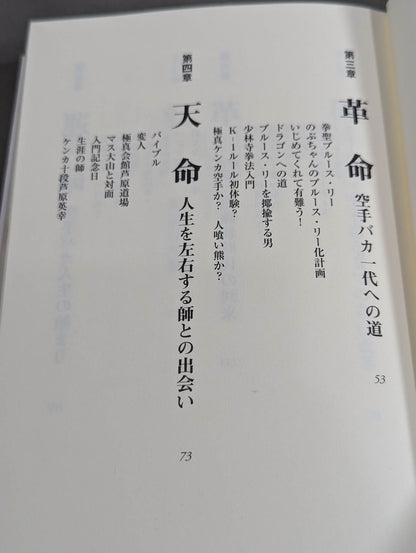 第三章
革命 空手バカ一代への道
53
拳聖ブルース・リー
のぶちゃんのブルース・リー化計画
いじめてくれて有難う！
ドラゴンへの道
ブルース・リーを揶揄する男
少林寺拳法入門
K-1ルール初体験？
極真ケンカ空手か？ 人喰い熊か？
第四章
天命 人生を左右する師との出会い
73
バイブル
変人
極真会館芦原道場
マス大山と対面
入門記念日
生涯の師
ケンカ十段芦原英幸